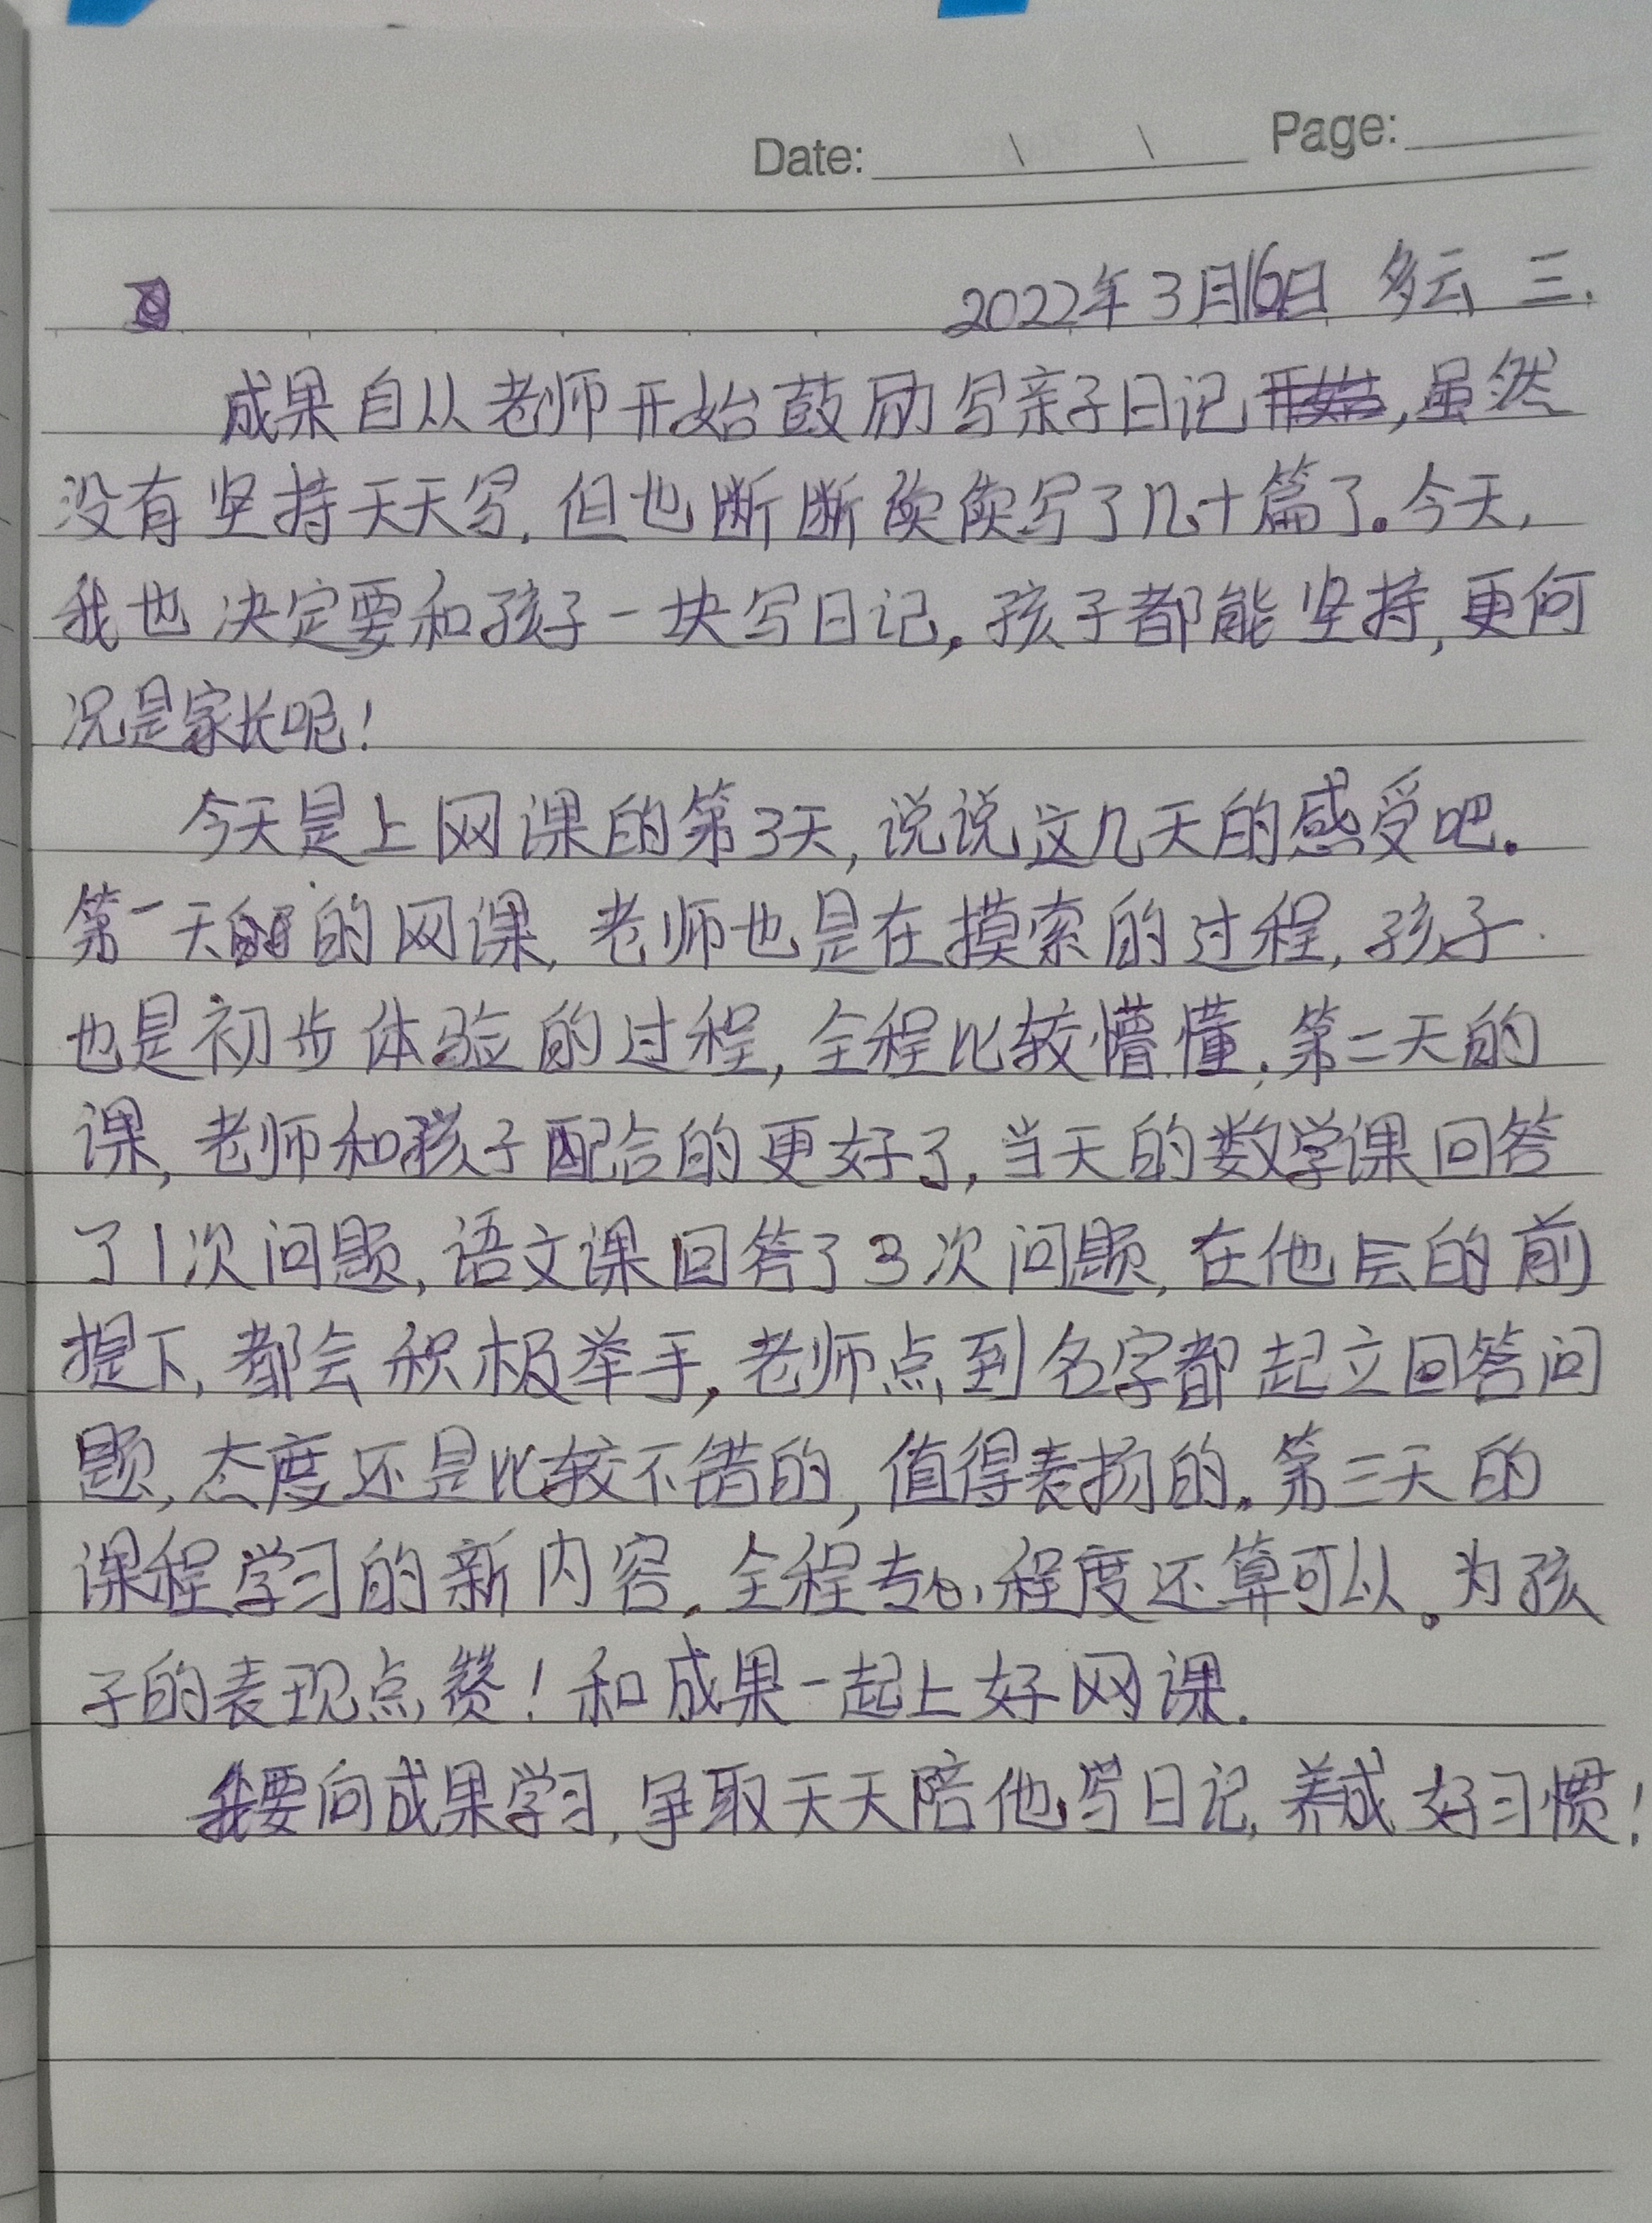 Date: \ \ Page:
2022年3月16日 多云 三.
成果自从老师开始鼓励写亲子日记,虽然
没有坚持天天写,但也断断续续写了几十篇了。今天,
我也决定要和孩子一块写日记。孩子都能坚持,更何
况是家长呢!
今天是上网课的第3天,说说这几天的感受吧。
第一天的网课,老师也是在摸索的过程,孩子
也是初步体验的过程,全程比较懵懂.第二天的
课,老师和孩子配合的更好了,当天的数学课回答
了1次问题,语文课回答了3次问题,在他会的前
提下,都会积极举手,老师点到名字都起立回答问
题,态度还是比较不错的,值得表扬的。第三天的
课程学习的新内容.全程专心程度还算可以。为孩
子的表现点赞!和成果一起上好网课.
我要向成果学习,争取天天陪他写日记,养成好习惯!